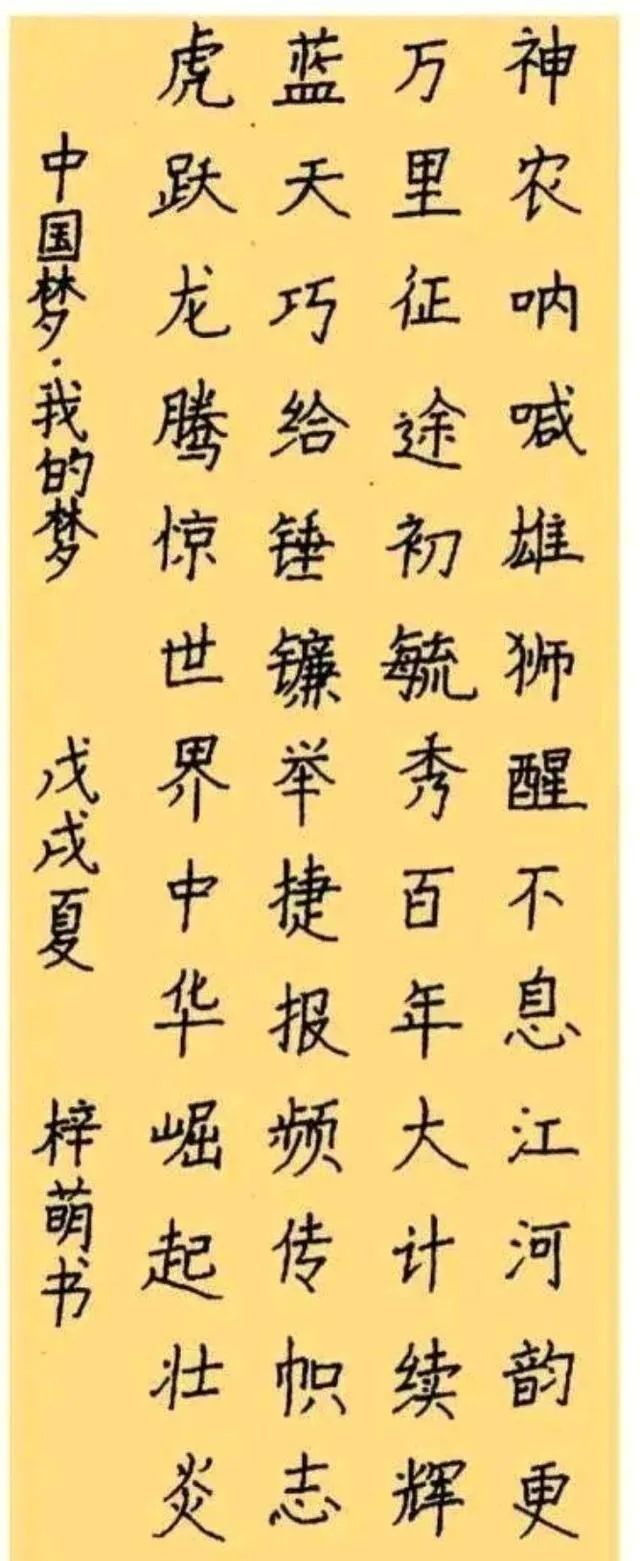 神农呐喊雄狮醒不息江河韵更
万里征途初毓秀百年大计续辉
蓝天巧给锤镰举捷报频传帜志
虎跃龙腾惊世界中华崛起壮炎
中国梦·我的梦 戊戌夏 梓萌书